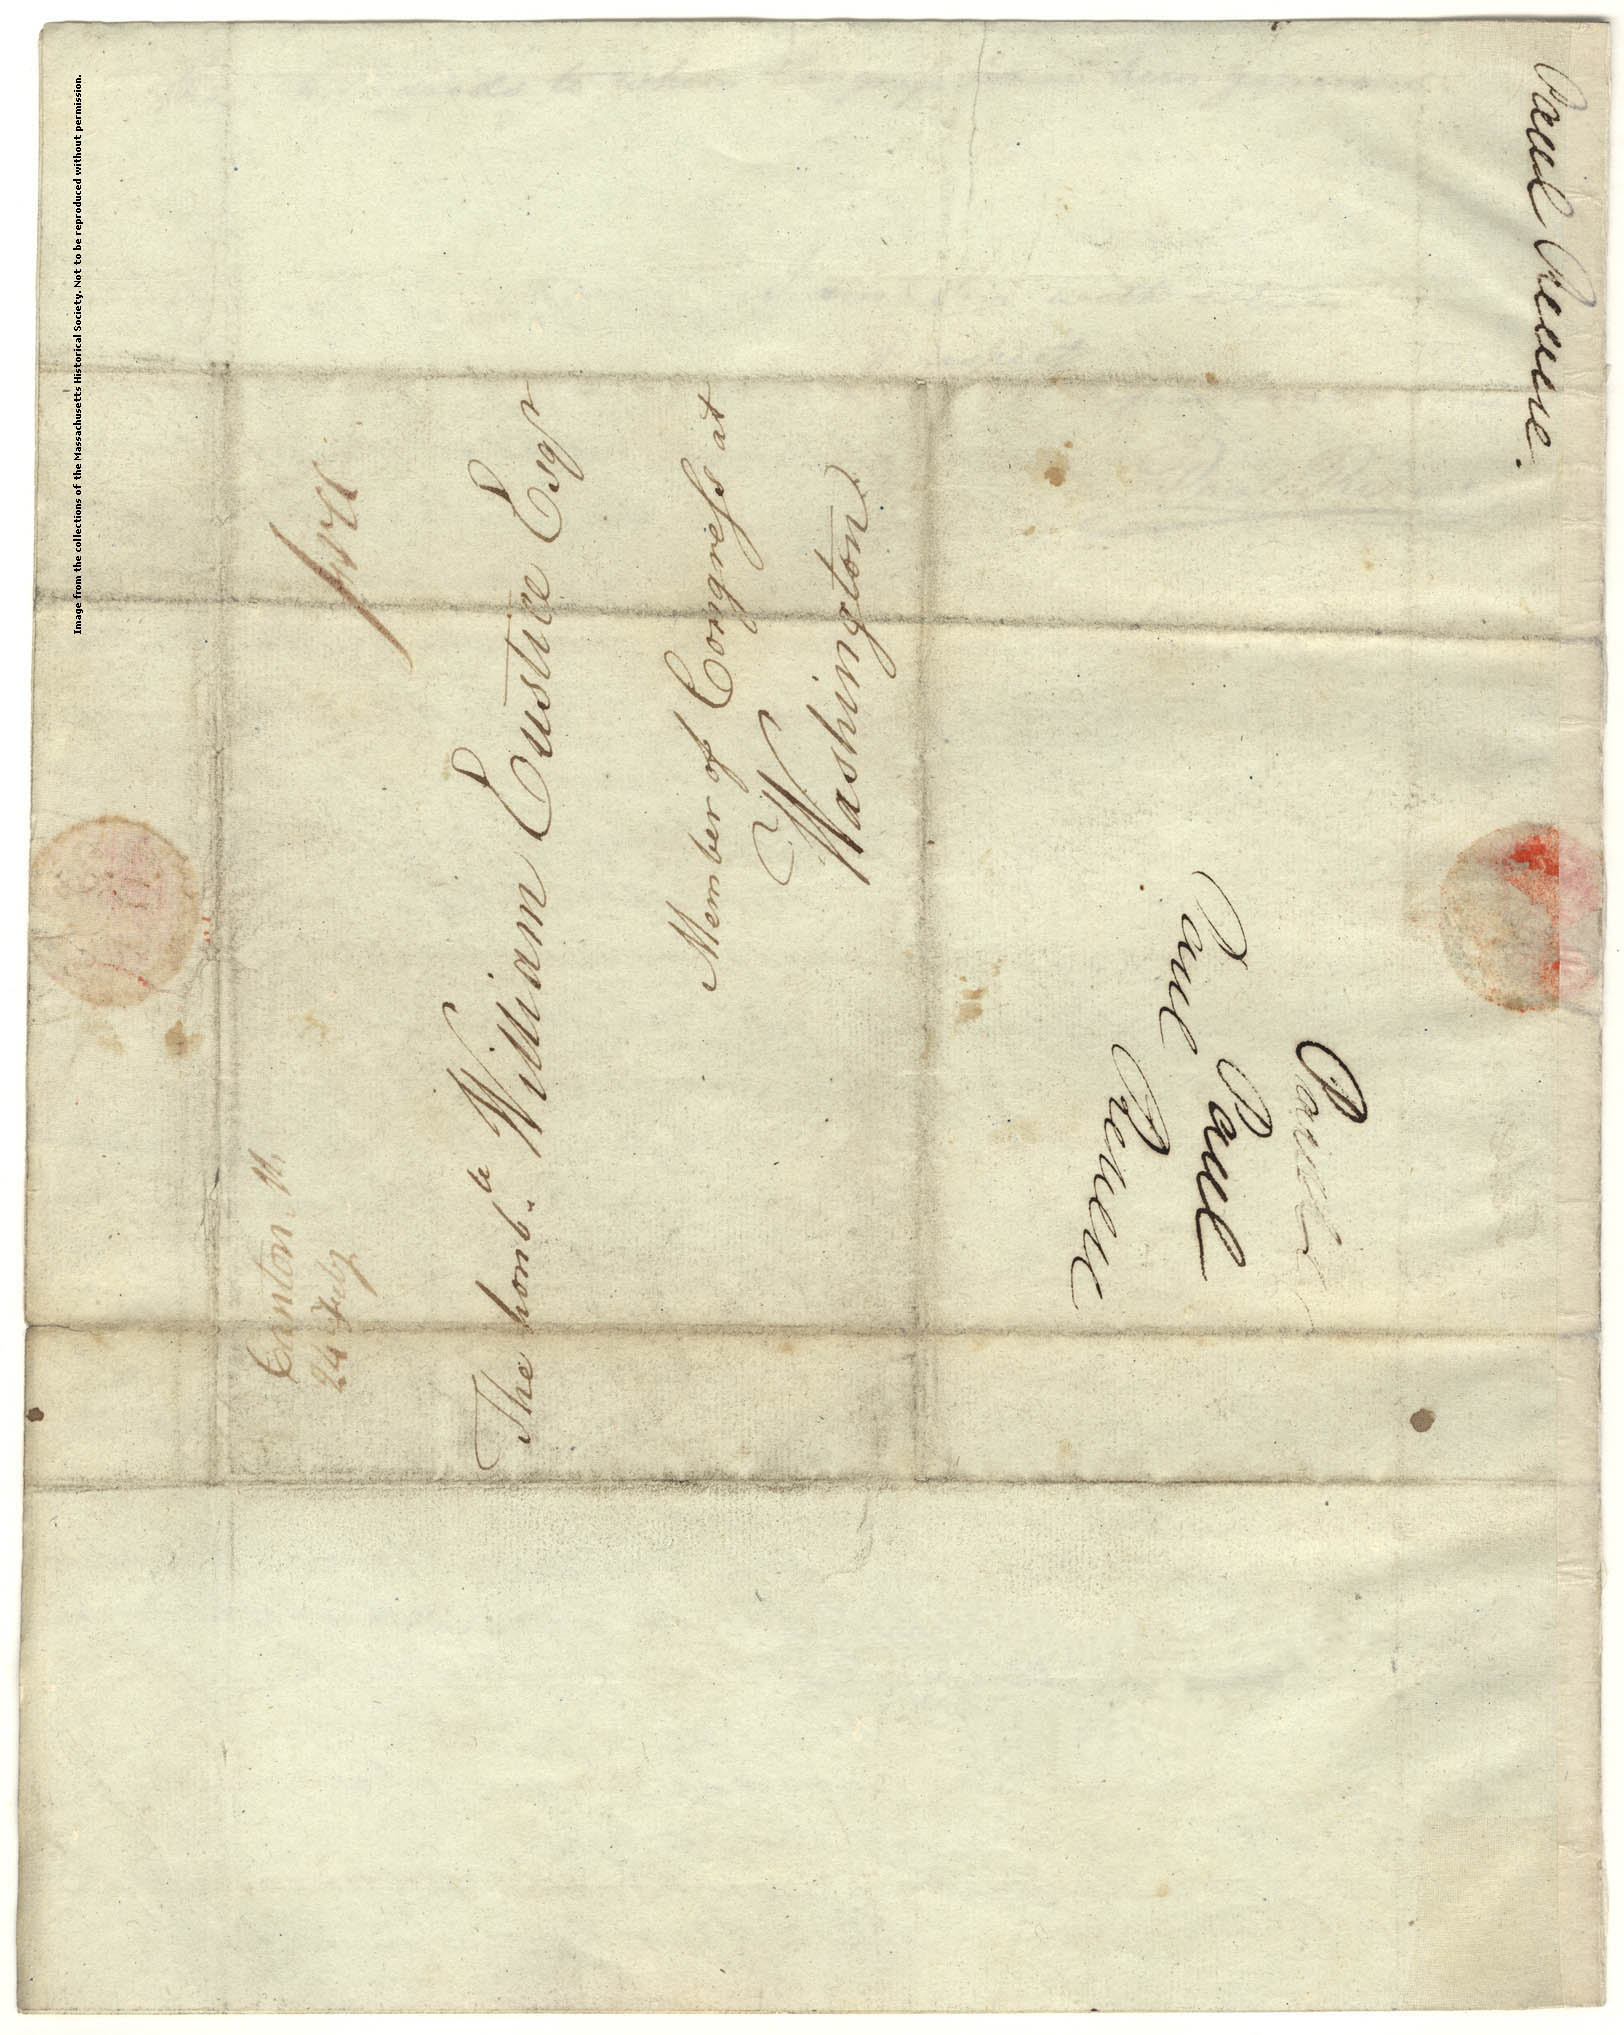 Image from the collections of the Massachusetts Historical Society. Not to be reproduced without permission.
free
Canton M.
24 July
The honb.le William Eustice Esqr
Member of Congress at
Washington
Paul
Revere
Paul
Paul
Paul Revere.